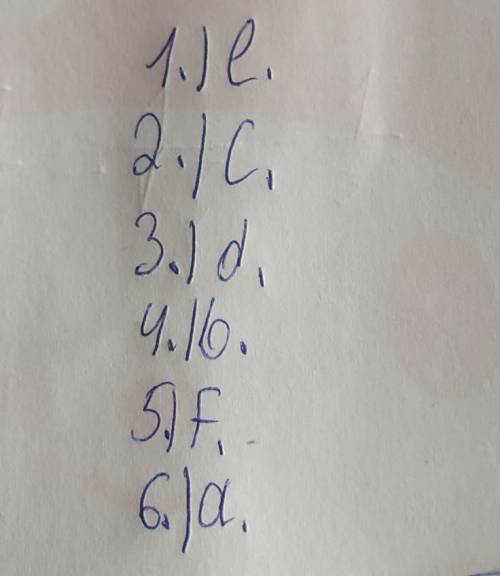 1.) e.
2.) C.
3.) d.
4.) b.
5.) F.
6.) a.